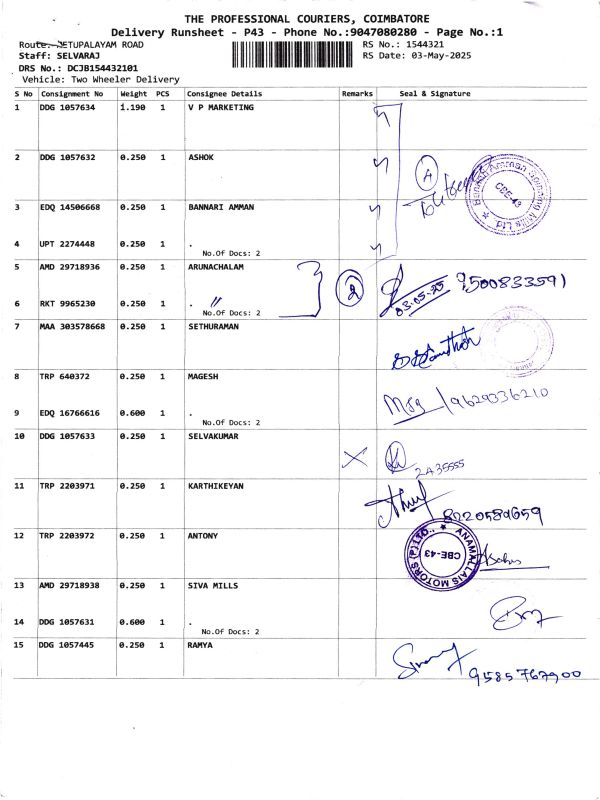 THE PROFESSIONAL COURIERS, COIMBATORE
Delivery Runsheet - P43 - Phone No.:9047080280 - Page No.:1
Route:-METUPALAYAM ROAD
RS No.: 1544321
Staff: SELVARAJ
RS Date: 03-May-2025
DRS No.: DCJB154432101
Vehicle: Two Wheeler Delivery
S No Consignment No Weight PCS Consignee Details Remarks Seal & Signature
1 DDG 1057634 1.190 1 V P MARKETING
2 DDG 1057632 0.250 1 ASHOK
4
CBE-43
3 EDQ 14506668 0.250 1 BANNARI AMMAN
4 UPT 2274448 0.250 1 .
No.Of Docs: 2
5 AMD 29718936 0.250 1 ARUNACHALAM
2 03-05-25 9500833591
6 RKT 9965230 0.250 1 . 〃
No.Of Docs: 2
7 MAA 303578668 0.250 1 SETHURAMAN
8 TRP 640372 0.250 1 MAGESH
9629336210
9 EDQ 16766616 0.600 1 .
No.Of Docs: 2
10 DDG 1057633 0.250 1 SELVAKUMAR
2435555
11 TRP 2203971 0.250 1 KARTHIKEYAN
8220589659
12 TRP 2203972 0.250 1 ANTONY
ANAMALLAIS MOTORS (P) LTD.,
CBE-43
13 AMD 29718938 0.250 1 SIVA MILLS
14 DDG 1057631 0.600 1 .
No.Of Docs: 2
15 DDG 1057445 0.250 1 RAMYA
9585767900